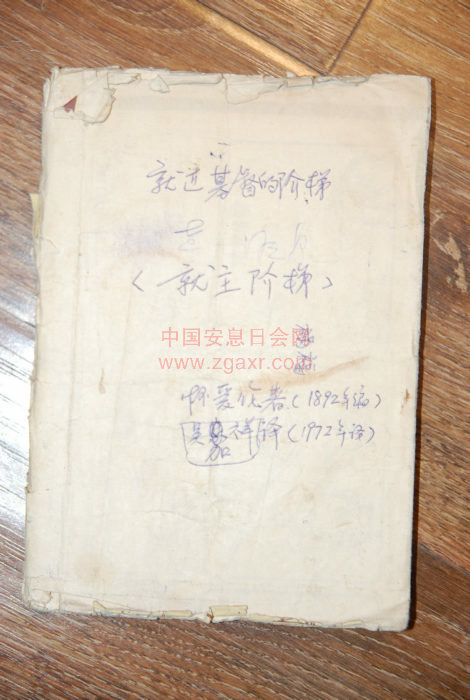 就近基督的阶梯
(就主阶梯)
中国安息日会网
www.zgaxr.com
怀爱伦著(1892年编)
吴 祥译(1972年译)
加